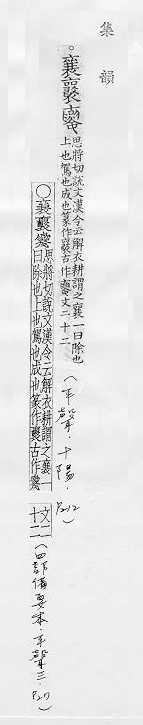 集韻
。襄㐮𡣿思將切說文漢令云解衣耕謂之襄一曰除也
上也駕也成也篆作㐮古作𡣿文二十二
(平聲.十陽.P212)
〇襄㐮𡣿思將切說文漢令云解衣耕謂之襄一
曰除也上也駕也成也篆作㐮古作𡣿
文二
十二
(四部備要本.平聲三.P27)